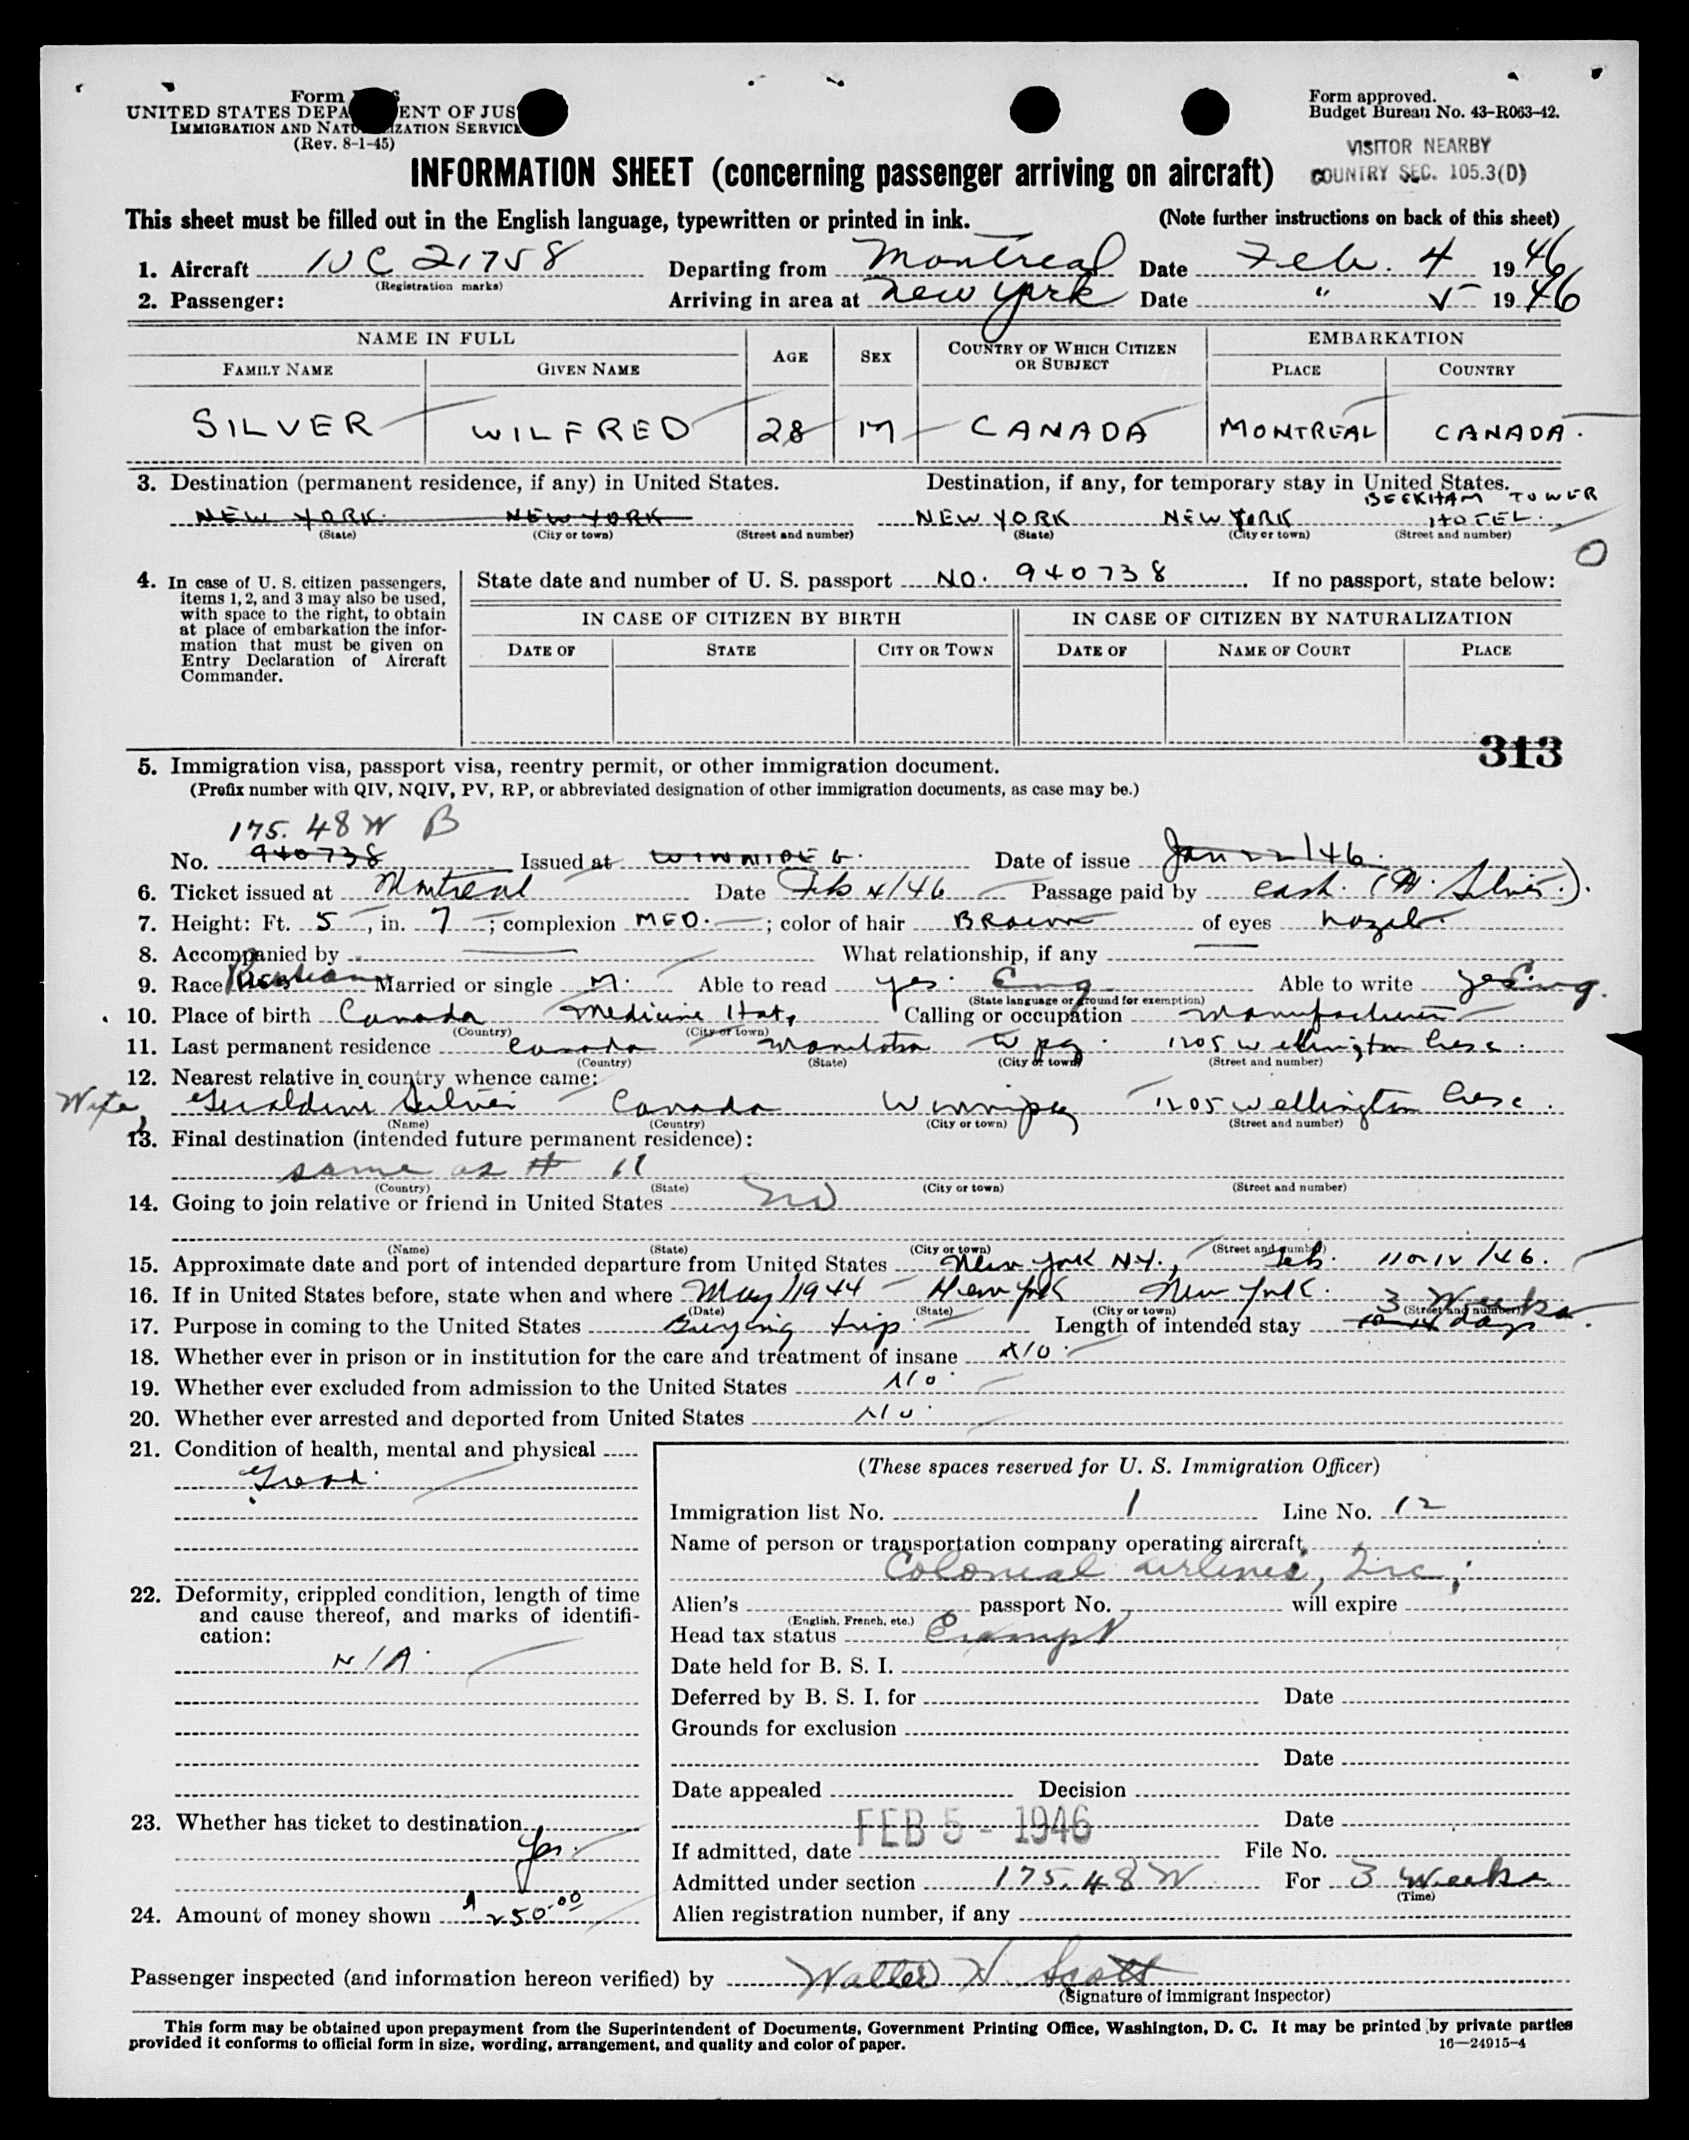 Form I-466
UNITED STATES DEPARTMENT OF JUSTICE
IMMIGRATION AND NATURALIZATION SERVICE
(Rev. 8-1-45)
Form approved.
Budget Bureau No. 43-R063-42.
VISITOR NEARBY
COUNTRY SEC. 105.3(D)
INFORMATION SHEET (concerning passenger arriving on aircraft)
This sheet must be filled out in the English language, typewritten or printed in ink. (Note further instructions on back of this sheet)
1. Aircraft NC 21758 Departing from Montreal Date Feb. 4 1946
(Registration marks)
2. Passenger: Arriving in area at New York Date " 5 1946
NAME IN FULL AGE SEX COUNTRY OF WHICH CITIZEN OR SUBJECT EMBARKATION
FAMILY NAME GIVEN NAME PLACE COUNTRY
SILVER WILFRED 28 M CANADA MONTREAL CANADA.
3. Destination (permanent residence, if any) in United States. Destination, if any, for temporary stay in United States.
BEEKHAM TOWER
NEW YORK. NEW YORK NEW YORK NEW YORK HOTEL.
(State) (City or town) (Street and number) (State) (City or town) (Street and number)
O
4. In case of U. S. citizen passengers, items 1, 2, and 3 may also be used, with space to the right, to obtain at place of embarkation the information that must be given on Entry Declaration of Aircraft Commander.
State date and number of U. S. passport NO. 940738. If no passport, state below:
IN CASE OF CITIZEN BY BIRTH IN CASE OF CITIZEN BY NATURALIZATION
DATE OF STATE CITY OR TOWN DATE OF NAME OF COURT PLACE
313
5. Immigration visa, passport visa, reentry permit, or other immigration document.
(Prefix number with QIV, NQIV, PV, RP, or abbreviated designation of other immigration documents, as case may be.)
175. 48 W B
No. 940738 Issued at WINNIPEG. Date of issue Jan 22/46.
6. Ticket issued at Montreal Date Feb 4/46 Passage paid by cash. (W. Silver.).
7. Height: Ft. 5, in. 7; complexion MED.; color of hair BROWN of eyes hazel.
8. Accompanied by — What relationship, if any —
9. Race Married or single M. Able to read yes. Eng Able to write yes Eng.
(State language or ground for exemption)
10. Place of birth Canada Medicine Hat, Calling or occupation Manufacturer
(Country) (City or town)
11. Last permanent residence Canada Manitoba Wpg. 1205 Wellington Cresc.
(Country) (State) (City or town) (Street and number)
12. Nearest relative in country whence came:
Wife, Geraldine Silver Canada Winnipeg 1205 Wellington Cresc.
(Name) (Country) (City or town) (Street and number)
13. Final destination (intended future permanent residence):
same as # 11
(Country) (State) (City or town) (Street and number)
14. Going to join relative or friend in United States No
(Name) (State) (City or town) (Street and number)
15. Approximate date and port of intended departure from United States New York NY., Feb. 11 or 12/46.
16. If in United States before, state when and where May/1944 - New York New York.
(Date) (State) (City or town) (Street and number)
3 Weeks.
17. Purpose in coming to the United States Buying trip Length of intended stay 10-14 days
18. Whether ever in prison or in institution for the care and treatment of insane NO.
19. Whether ever excluded from admission to the United States No.
20. Whether ever arrested and deported from United States No.
21. Condition of health, mental and physical
Good.
22. Deformity, crippled condition, length of time and cause thereof, and marks of identification:
N/A.
23. Whether has ticket to destination
Yes.
24. Amount of money shown 250.00
(These spaces reserved for U. S. Immigration Officer)
Immigration list No. 1 Line No. 12
Name of person or transportation company operating aircraft
Colonial Airlines, Inc.;
Alien's passport No. will expire
(English, French, etc.)
Head tax status Exempt
Date held for B. S. I.
Deferred by B. S. I. for Date
Grounds for exclusion
Date
Date appealed Decision
Date
If admitted, date FEB 5 - 1946 File No.
Admitted under section 175.48 W For 3 Weeks
(Time)
Alien registration number, if any
Passenger inspected (and information hereon verified) by Walter H. Scott
(Signature of Immigrant Inspector)
This form may be obtained upon prepayment from the Superintendent of Documents, Government Printing Office, Washington, D. C. It may be printed by private parties
provided it conforms to official form in size, wording, arrangement, and quality and color of paper. 16—24915-4